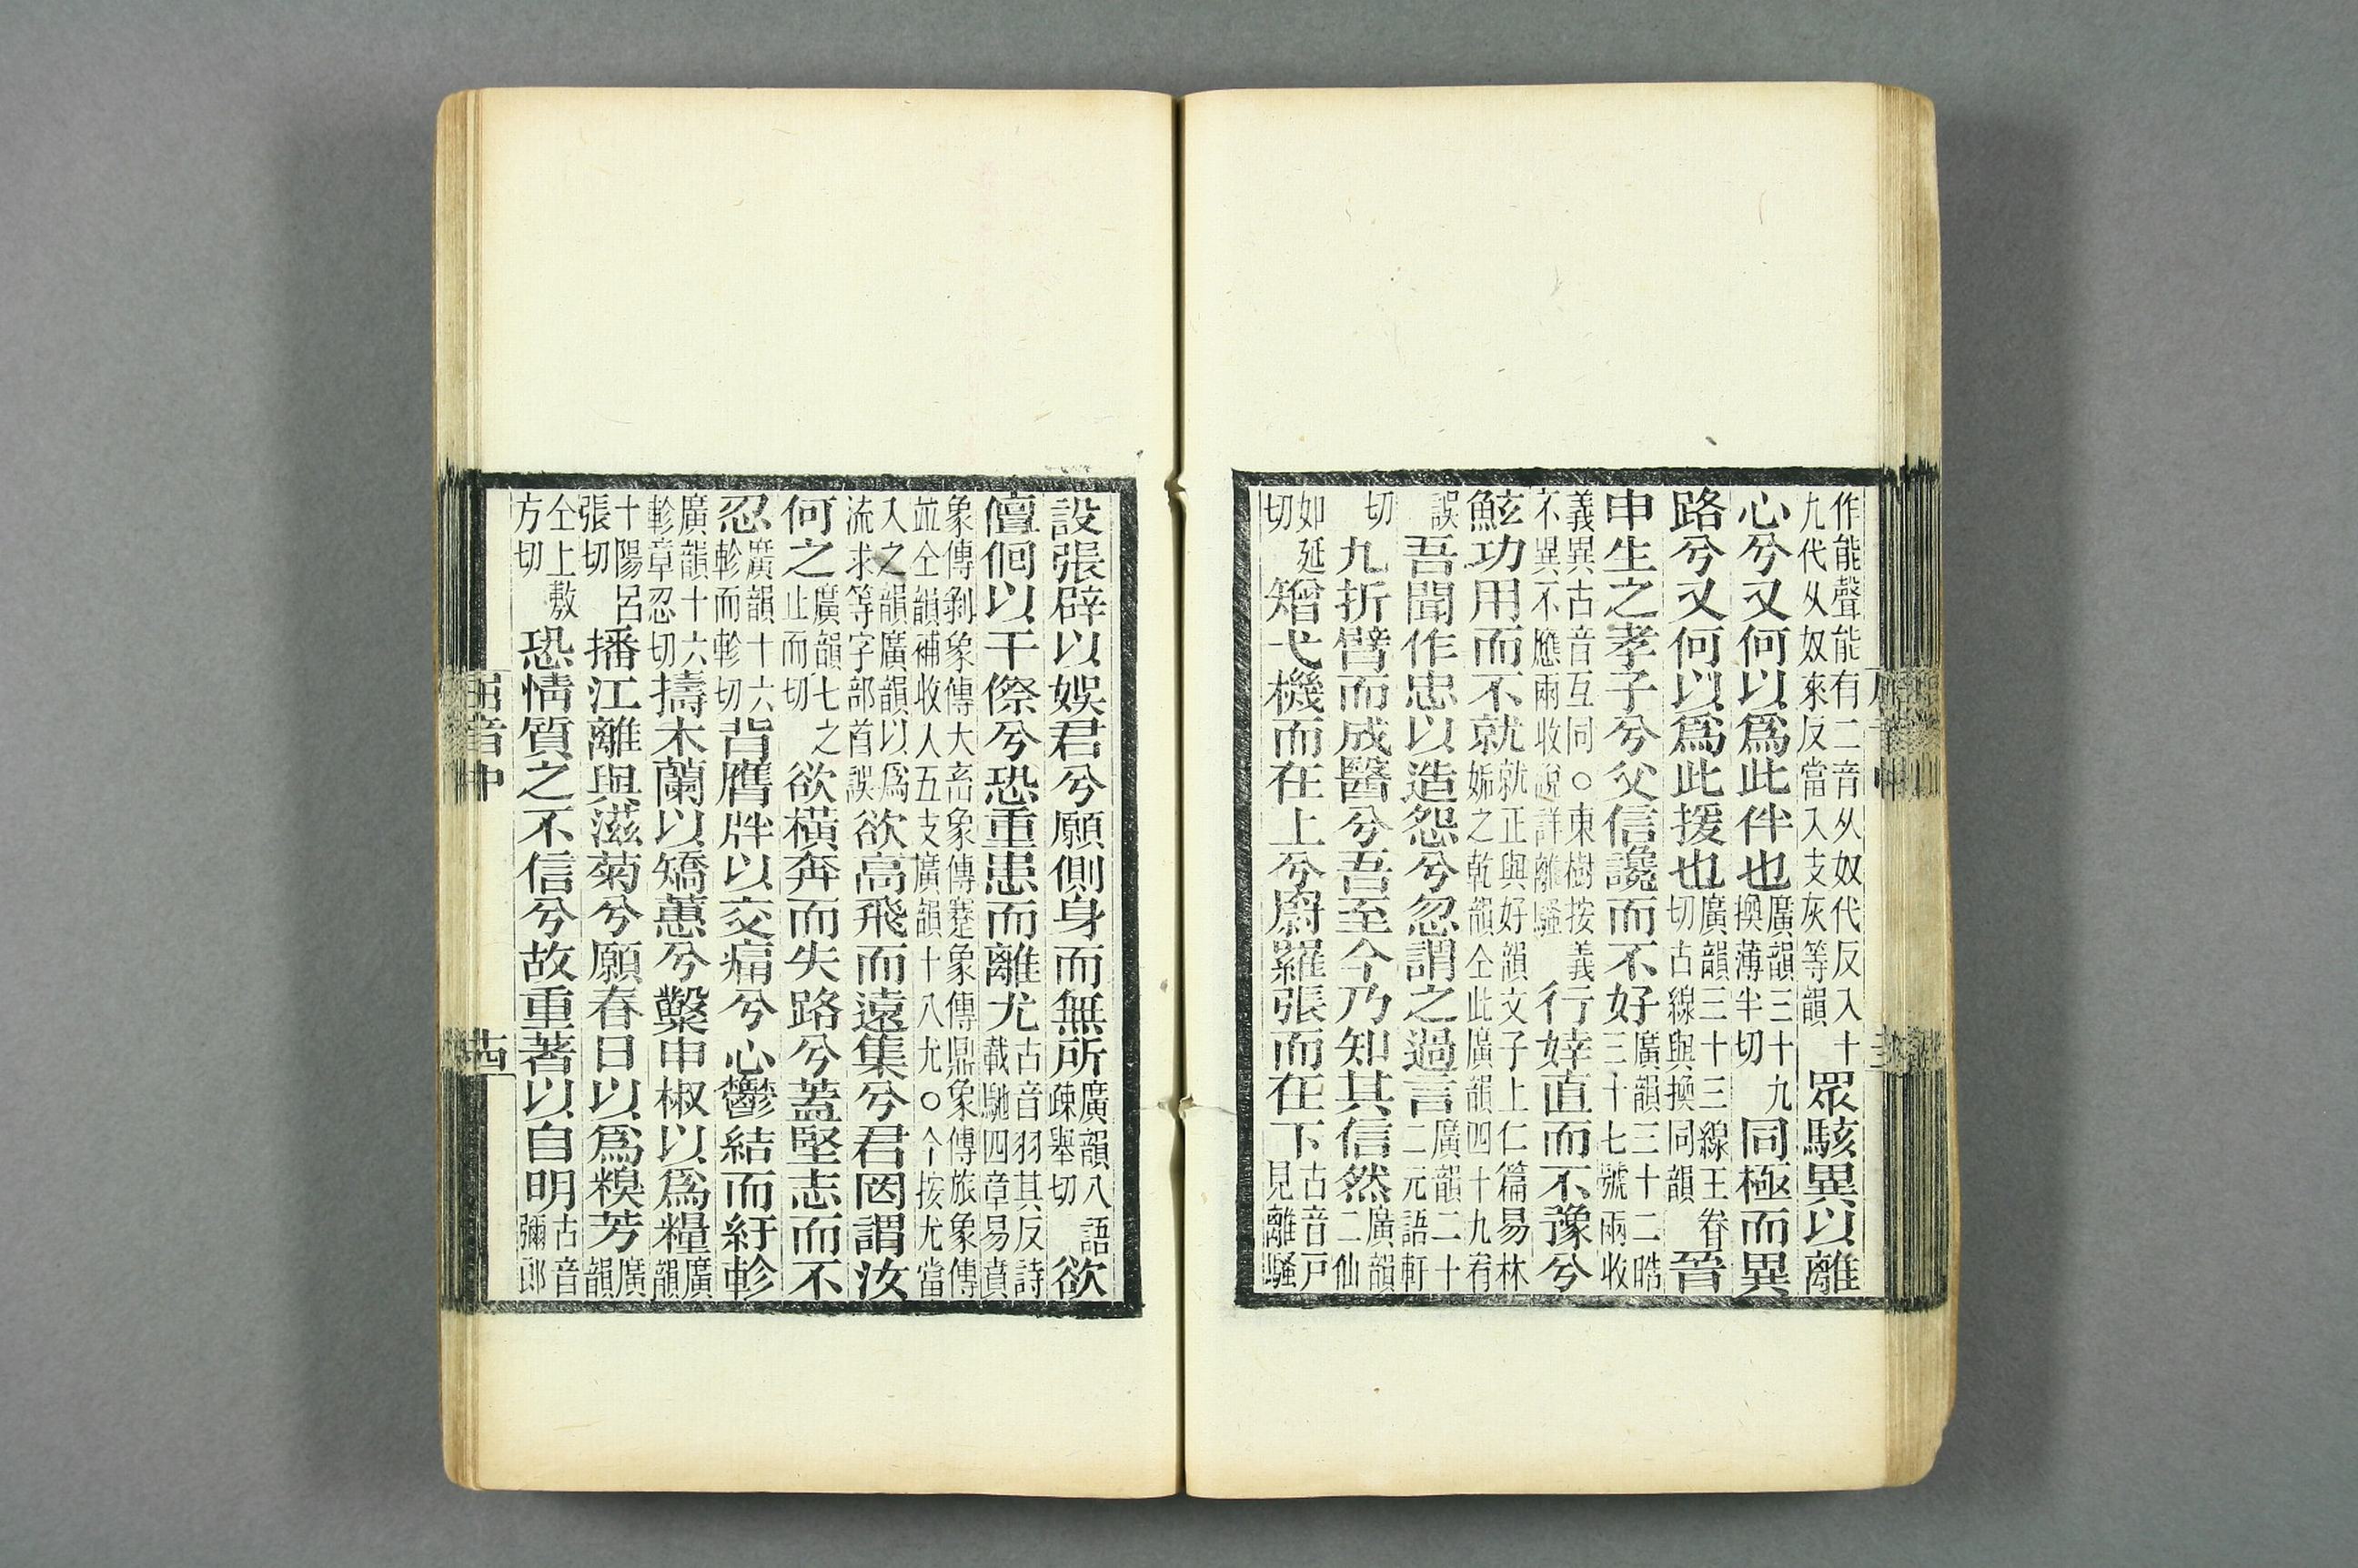 作能聲能有二音从奴代反入十九代从奴來反當入支灰等韻眾駭異以離
心兮又何以爲此伴也廣韻三十九換薄半切同極而異
路兮又何以爲此援也廣韻三十三線王眷切古線與換同韻晉
申生之孝子兮父信讒而不好廣韻三十二晧三十七號兩收
義異古音互同○東樹按義不異不應兩收說詳離騷行婞直而不豫兮
鮌功用而不就就正與好韻文子上仁篇易林姤之乾韻仝此廣韻四十九宥
誤吾聞作忠以造怨兮忽謂之過言廣韻二十二元語軒
切九折臂而成醫兮吾至今乃知其信然廣韻二仙
如延切矰弋機而在上兮罻羅張而在下古音戸見離騷
設張辟以娛君兮願側身而無所廣韻八語疎舉切欲
儃佪以干傺兮恐重患而離尤古音羽其反詩載馳四章易賁
象傳剝象傳大畜象傳蹇象傳鼎象傳旅象傳並仝韻補收人五支廣韻十八尤○今按尤當
入之韻廣韻以爲流求等字部首誤欲高飛而遠集兮君罔謂汝
何之廣韻七之止而切欲橫奔而失路兮蓋堅志而不
忍廣韻十六軫而軫切背膺牉以交痛兮心鬱結而紆軫
廣韻十六軫章忍切擣木蘭以矯蕙兮糳申椒以爲糧廣韻
十陽呂張切播江離與滋菊兮願春日以爲糗芳廣韻
仝上敷方切恐情質之不信兮故重著以自明古音彌郎
屈音中
十四